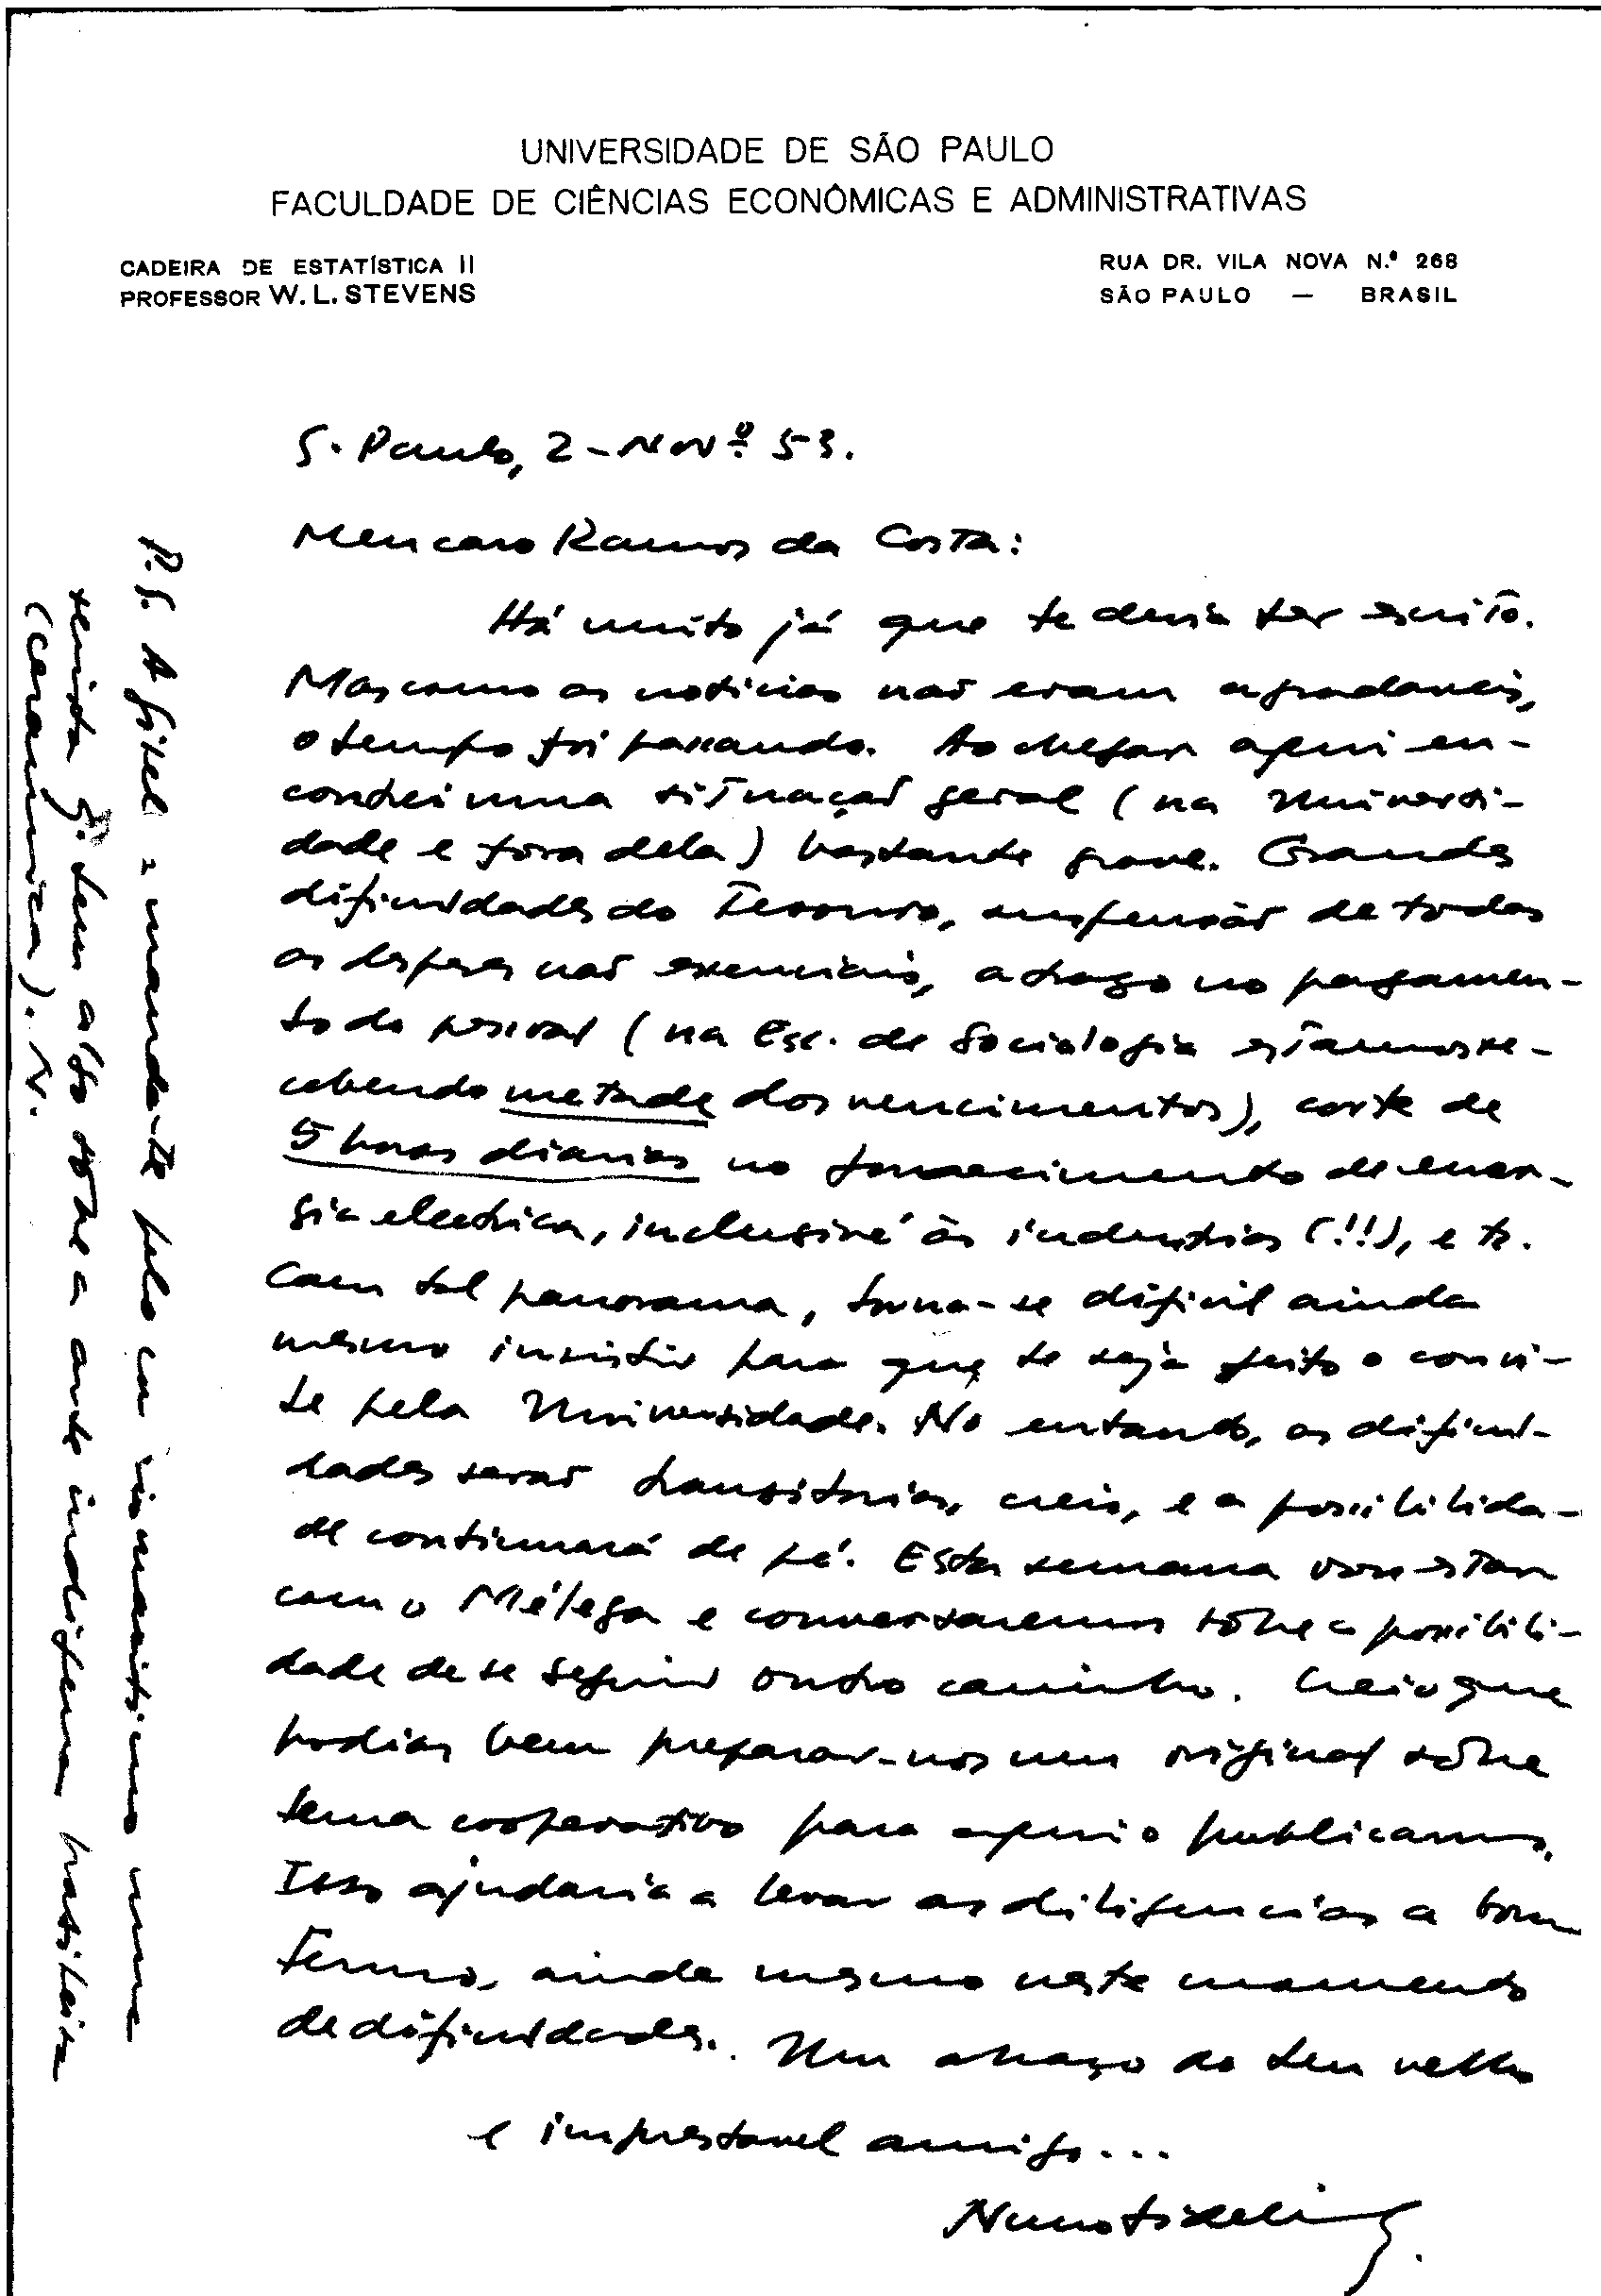 UNIVERSIDADE DE SÃO PAULO
FACULDADE DE CIÊNCIAS ECONÔMICAS E ADMINISTRATIVAS
CADEIRA DE ESTATÍSTICA II
PROFESSOR W. L. STEVENS
RUA DR. VILA NOVA N.º 268
SÃO PAULO — BRASIL
S. Paulo, 2-Novº 53.
Meu caro Ramos da Costa:
Há muito já que te devia ter escrito.
Mas como as noticias não eram agradaveis,
o tempo foi passando. Ao chegar aqui en-
contrei uma situação geral (na Universi-
dade e fora dela) bastante grave. Grandes
dificuldades do Tesouro, suspensão de todas
as despesas não essenciais, atraso no pagamen-
to do pessoal (na Esc. de Sociologia estamos re-
cebendo metade dos vencimentos), corte de
5 horas diarias no fornecimento de ener-
gia electrica, inclusivé às industrias (!!), etc.
Com tal panorama, torna-se dificil ainda
mesmo insistir para que te seja feito o convi-
te pela Universidade. No entanto, as dificul-
dades serão transitorias, creio, e a possibilida-
de continuará de pé. Esta semana vou estar
com o Mélega e conversaremos sôbre a possibili-
dade de se seguir outro caminho. Creio que
podias bem preparar-nos um original sôbre
tema cooperativo para aqui o publicarmos.
Isso ajudaria a levar as diligencias a bom
termo, ainda mesmo neste momento
de dificuldades. Um abraço do teu velho
e imprestavel amigo...
Nuno Fidelino
P.S. A gitel : mandar-te pelo ca uma
revista q. tem algo sôbre a arte indigena brasileira
(ceramica). N.